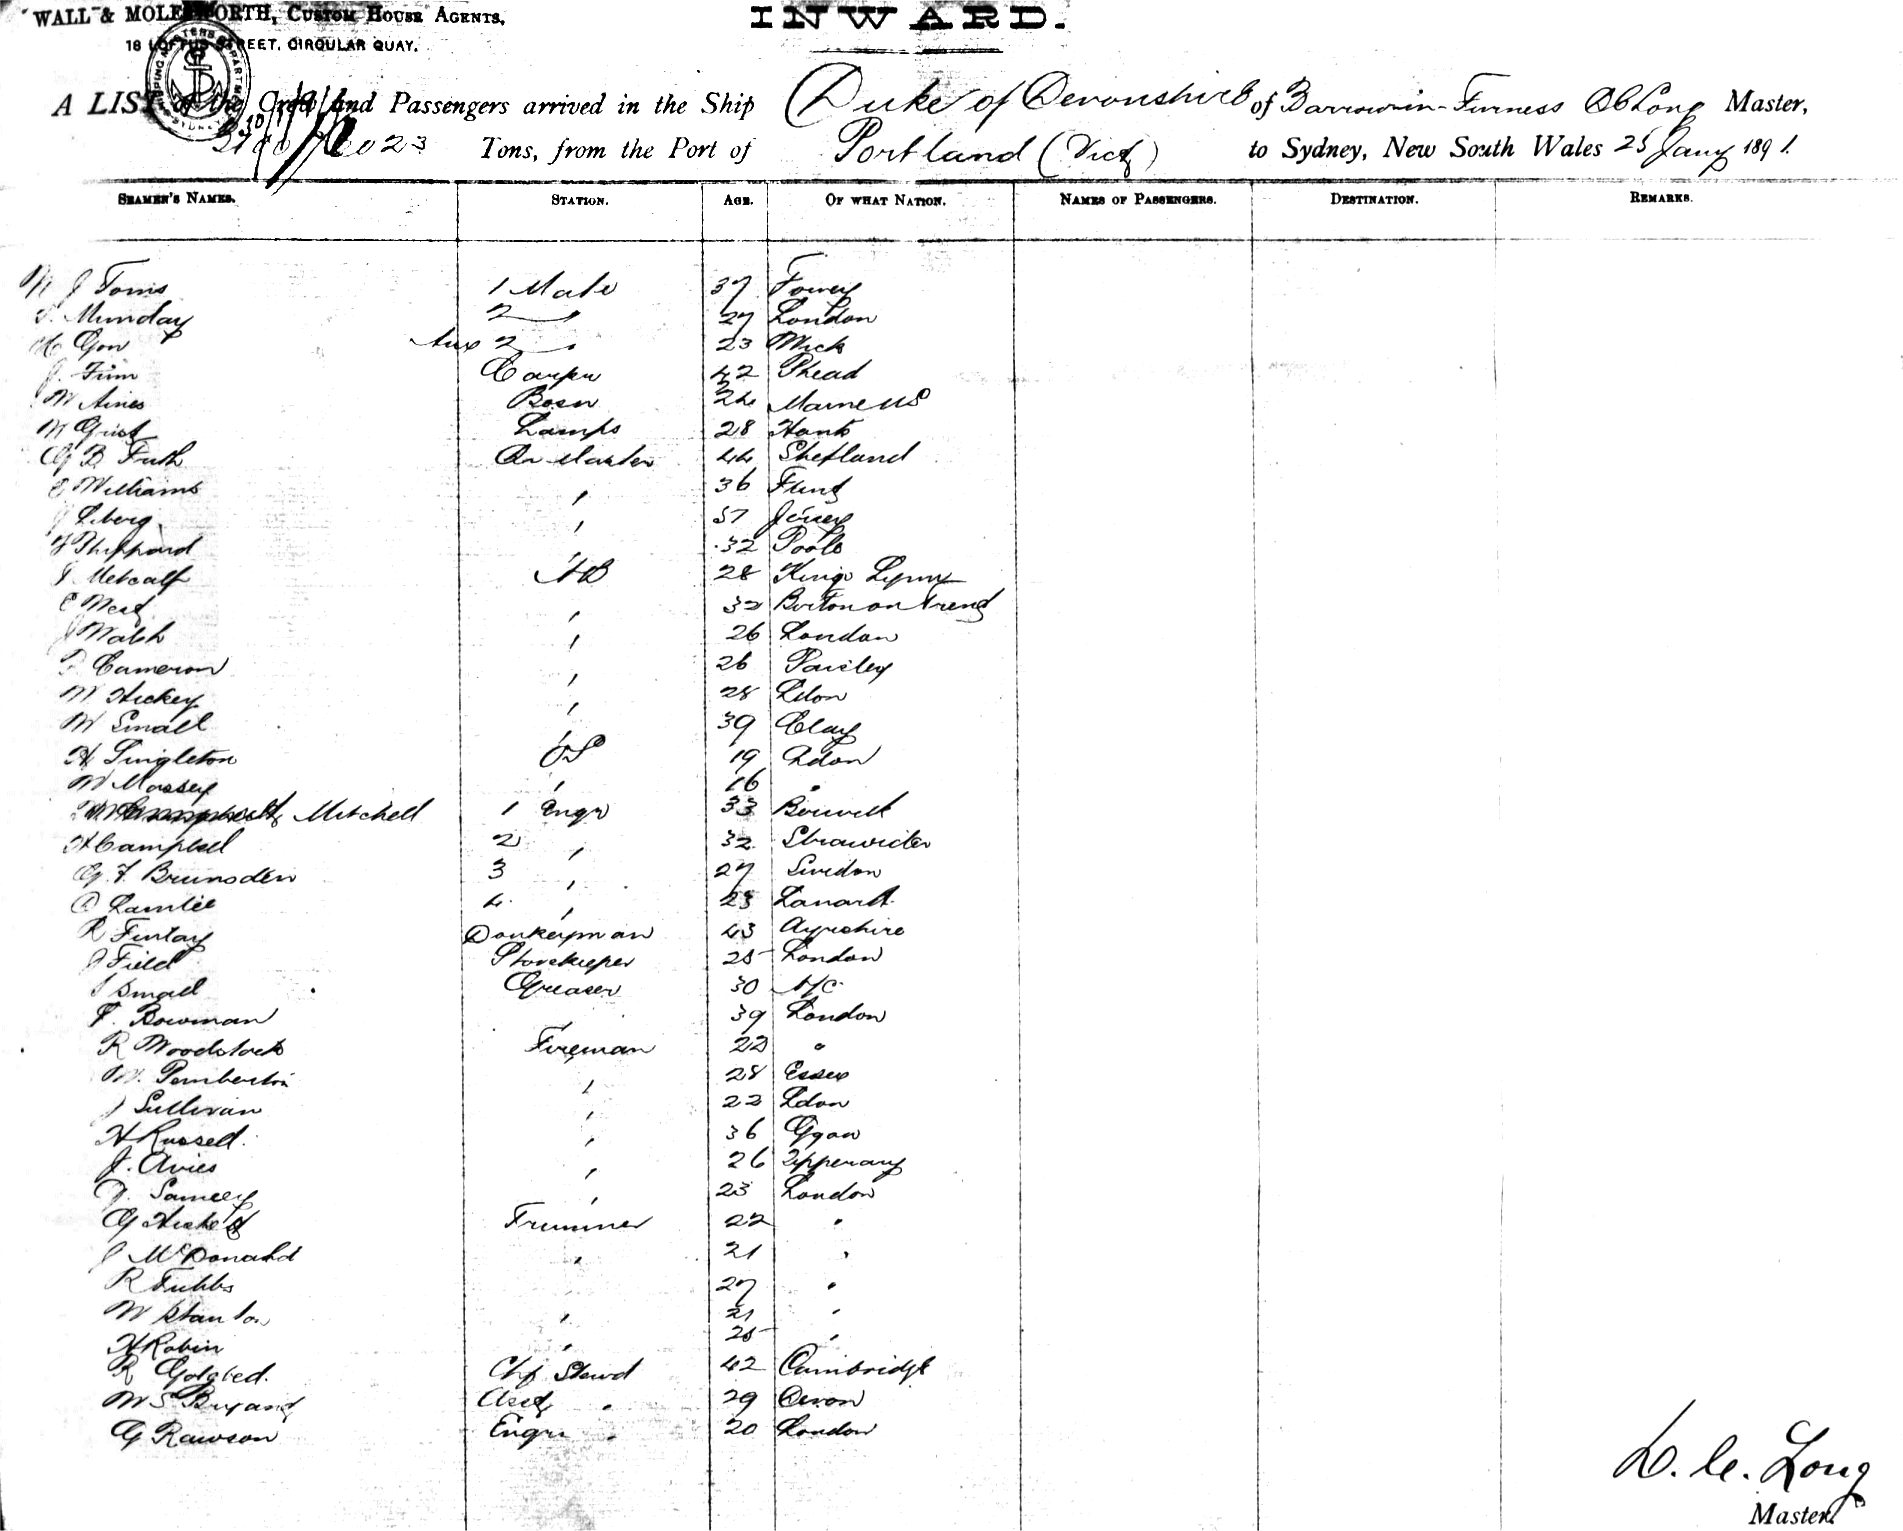 WALL & MOLESWORTH, CUSTOM HOUSE AGENTS,
18 LOFTUS STREET, CIRCULAR QUAY.
INWARD.
A LIST of the Crew and Passengers arrived in the Ship Duke of Devonshire of Barrow-in-Furness D C Long Master,
Tons, from the Port of Portland (Vict) to Sydney, New South Wales 25 Jany 1891.
SEAMEN'S NAMES. STATION. AGE. OF WHAT NATION. NAMES OF PASSENGERS. DESTINATION. REMARKS.
W J Toms 1 Mate 37 Fowey
Munday 2 " 27 London
Gow Aux 2 " 23 Wick
J. Finn Carpr 42 Phead
W Aines Bosn 24 Maine US
W Grist Lamps 28 Hants
G B Frith Qr Master 44 Shetland
E Williams " 36 Flint
Liberg " 37 Jersey
Sheppard " 32 Poole
J Metcalf AB 28 Kings Lynn
E West " 32 Burton on Trent
J Walsh " 26 London
D Cameron " 26 Paisley
W Hickey " 28 Ldon
W Small " 39 Clay
H Singleton OS 19 Ldon
W Massey " 16 "
Mitchell 1 Engr 33
H Campbell 2 " 32
G. F Brunsden 3 " 27 Swindon
4 " 23 Lanark
R Finlay Donkeyman 43 Ayrshire
J Field Storekeeper 25 London
J Small Greaser 30 N/C
F. Bowman " 39 London
R Woodstock Fireman 22 "
W. Pemberton " 28 Essex
J Sullivan " 22 Ldon
H Russell " 36 Ggow
J. Avies " 26 Tipperary
" 23 London
G Trimmer 22 "
J McDonald " 21 "
R Tubbs 27 "
W Stanton " 21 "
H Robin " 25 "
R Chf Stewd 42 Cambridge
W S Bryant Asst " 29 Devon
G Rawson Engrs " 20 London
D. C. Long
Master.